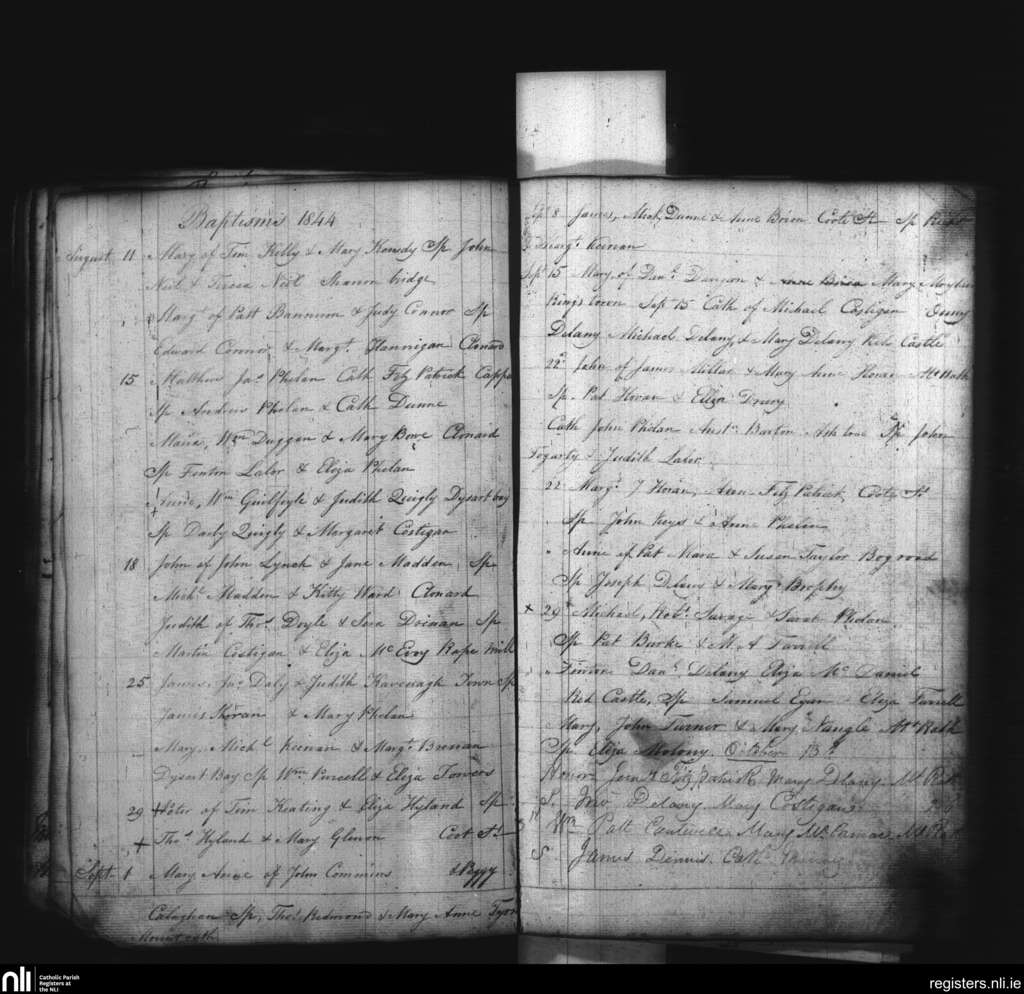 Baptisms 1844
August 11 Mary of Tim Kelly & Mary Kenedy Sp John
Neil & Teresa Neil Shannon bridge
Margt. of Patt Bannunn & Judy Connor Sp
Edward Connor & Margt. Hannigan Clonard
15 Matthew Jas Phelan Cath Fitz Patrick Cappa
Sp Andrew Phelan & Cath Dunne
Maria, Wm Duggan & Mary Bowe Clonard
Sp Fenton Lalor & Eliza Phelan
Wm Guilfoyle & Judith Quigly Dysart bay
Sp Darby Quigly & Margaret Costigan
18 John of John Lynch & Jane Madden, Sp
Michl Madden & Kitty Ward Clonard
Judith of Thos. Doyle & Sera Doinan Sp
Martin Costigan & Eliza Mc Evoy Rape Mill
25 James, Jas Daly & Judith Kavenagh Town Sp
James Horan & Mary Phelan
Mary, Michl Keenan & Margt. Brenan
Dysart Bay Sp Wm Purcell & Eliza Towers
29 Peter of Tim Keating & Eliza Hyland Sp
+ Thos Hyland & Mary Glenon Coot St
Sept. 1 Mary Anne of John Commins & Peggy
Calaghan Sp, Thos. Redmond & Mary Anne
Mountrath
Sept 8 James, Mich, Dunne & Anne Brien Coote St Sp
& Margt Keenan
Sept 15 Mary of Danl. &
Kings town Sept 15 Cath of Michael Costigan
Delany Michael Delany, & Mary Delany Red Castle
22d John of James Millar & Mary Anne Mt Rath
Sp. Pat & Eliza Drury
Cath John Phelan Barton Sp John
Fogarty & Judith Lalor
22 Margt. J Horan, Ann Fitz Patrick, Coote St
Sp John Keys & Anne Phelan
Anne of Pat Mara & Susan Taylor Bog road
Sp Joseph Delany & Mary Brophy
+ 29 Michael, Robt. Savage & Sarah Phelan
Sp Pat Burke & M. A Farrell
Finton Danl. Delany Eliza Mc Daniel
Red Castle, Sp Samuel Egan Eliza Farrell
Mary, John Turner & Mary Nangle Mt Rath
Sp Eliza Molony October
Honor Fitz Patrick Mary Delany Mt Rath
S. Delany Mary Costigan
Wm Patt Mary Mt Rath
S James Dennis. Cath
nli Catholic Parish
Registers at
the NLI
registers.nli.ie